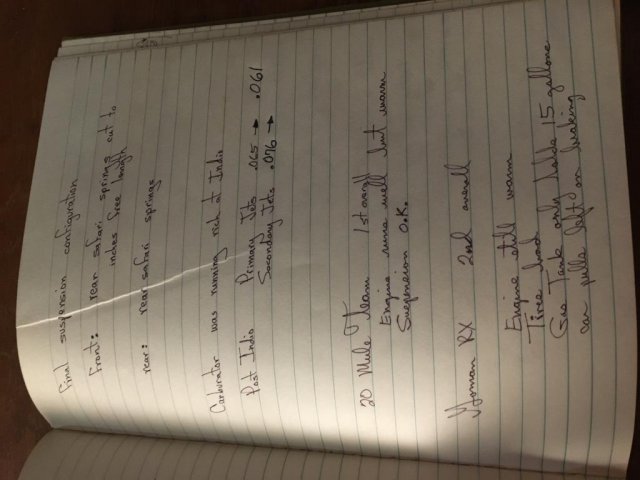 Final suspension configuration
Front: rear safari springs cut to
inches free length
rear: rear safari springs
Carburator was running rich at Indio
Post Indio Primary Jets .065 → .061
Secondary Jets .076 →
20 Mule Team 1st overall
Engine runs well but warm
Suspension O.K.
RX 2nd overall
Engine still warm
Tires bad
Gas Tank only holds 15 gallons
car pulls left on braking